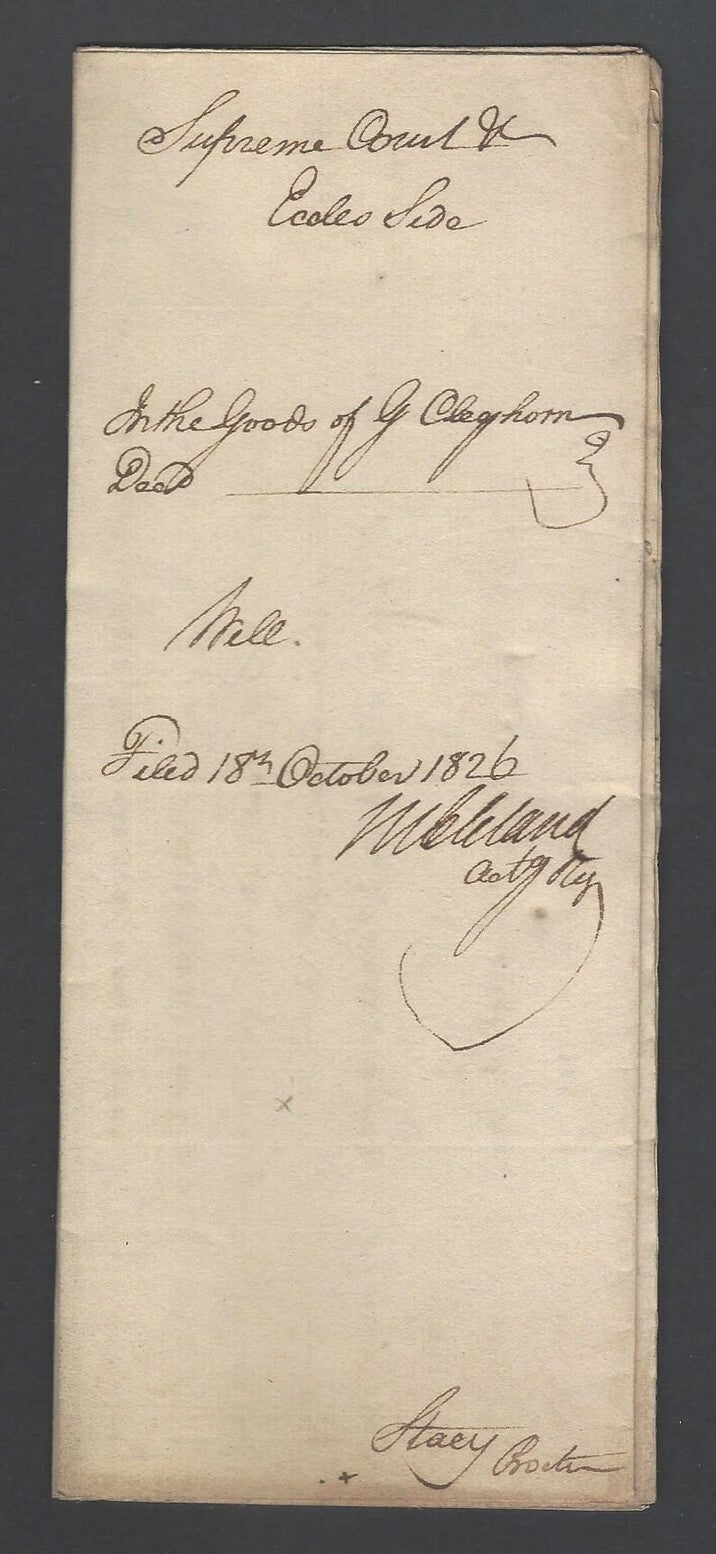 Supreme Court &c
Eccles Side
In the Goods of G Cleghorn
Decd
Will.
Filed 18th October 1826
Actg Reg
Stacy Proctr